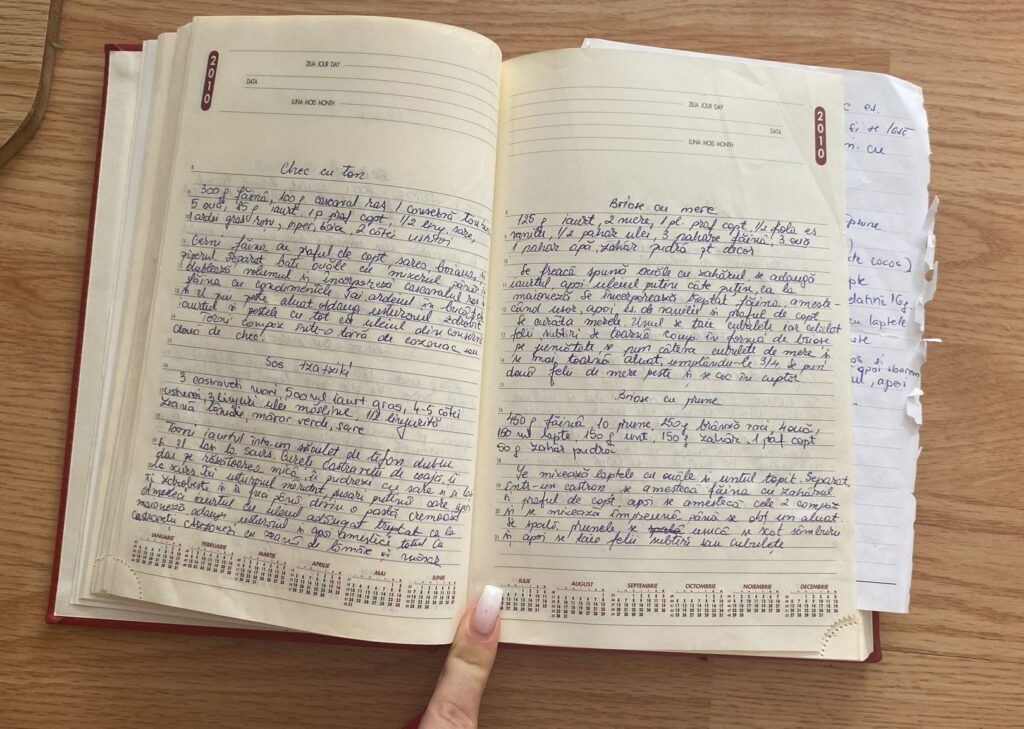 2010
ZIUA JOUR DAY
DATA
LUNA MOIS MONTH
Chec cu ton
300 g făină, 100 g cascaval ras 1 conservă ton
5 ouă, 85 g iaurt, 1 p praf copt, 1/2 sare,
1 ardei gras rosu, piper, boia, 2 căței usturoi
Cerni făina cu praful de copt sarea, boiaua,
piperul. Separat bati ouăle cu mixerul până își
dublează volumul și incorporează cascavalul ras
făina cu condimentele. Tai ardeiul în bucăți
Il pui peste aluat adauga usturoiul zdrobit
iaurtul și pestele cu tot cu uleiul din conservă
Torni compoz într-o formă de cozonac sau
două de chec.
Sos tzatziki
3 castraveti mari, 500 ml iaurt gras, 4-5 căței
usturoi, 3 linguri ulei măsline, 1/2 linguriță
zeamă lămâie, mărar verde, sare
Torni iaurtul într-un săculet de tifon dublu
și îl lasi la scurs. Cureti castravetii de coajă, îi
dai pe răzătoarea mică, îi pudrezi cu sare și îi lasi
la scurs. Tai usturoiul mărunt, presari puțină sare, apoi
îl zdrobesti și îl freci până devine o pastă cremoasă
Amesteci iaurtul cu uleiul adăugat treptat ca la
maioneză adaugi usturoiul și apoi amesteci totul cu
castravetii cu zeamă de lămâie si mărar
IANUARIE FEBRUARIE MARTIE APRILIE MAI IUNIE
2010
ZIUA JOUR DAY
DATA
LUNA MOIS MONTH
Briose cu mere
125 g iaurt, 2 mere, 1 pl. praf copt, 1/2 fiola es
vanilie, 1/2 pahar ulei, 3 pahare făină, 3 ouă
1 pahar apă, zahăr pudră pt decor
Se freacă spumă ouăle cu zahărul se adaugă
iaurtul, apoi uleiul putin câte putin, ca la
maioneză. Se incorporează treptat făina, ameste-
când usor, apoi es. de vanilie și praful de copt
Se curăta merele. Unul se taie cubulete iar celelalt
felii subtiri se toarnă comp. în forma de briose
pe jumătate se pun câteva cubulete de mere și
se mai toarnă aluat, umplându-le 3/4. Se pun
două felii de mere peste si se coc în cuptor
Briose cu prune
450 g făină, 10 prune, 250 g brânză vaci, 4 ouă,
150 ml lapte, 150 g unt, 150 g zahăr, 1 paf copt
50 g zahăr pudră
Se mixează laptele cu ouăle și untul topit. Separat,
într-un castron se amestecă făina cu zahărul
și praful de copt, apoi se amestecă cele 2 compoz
si se mixează împreună până se obt un aluat.
Se spală prunele, se usucă se scot sâmburii
si apoi se taie felii subtiri sau cubulete
IULIE AUGUST SEPTEMBRIE OCTOMBRIE NOIEMBRIE DECEMBRIE
es.
se lasă
cu
prune
cocos)
lapte
gelatină 16g
cu laptele
apoi